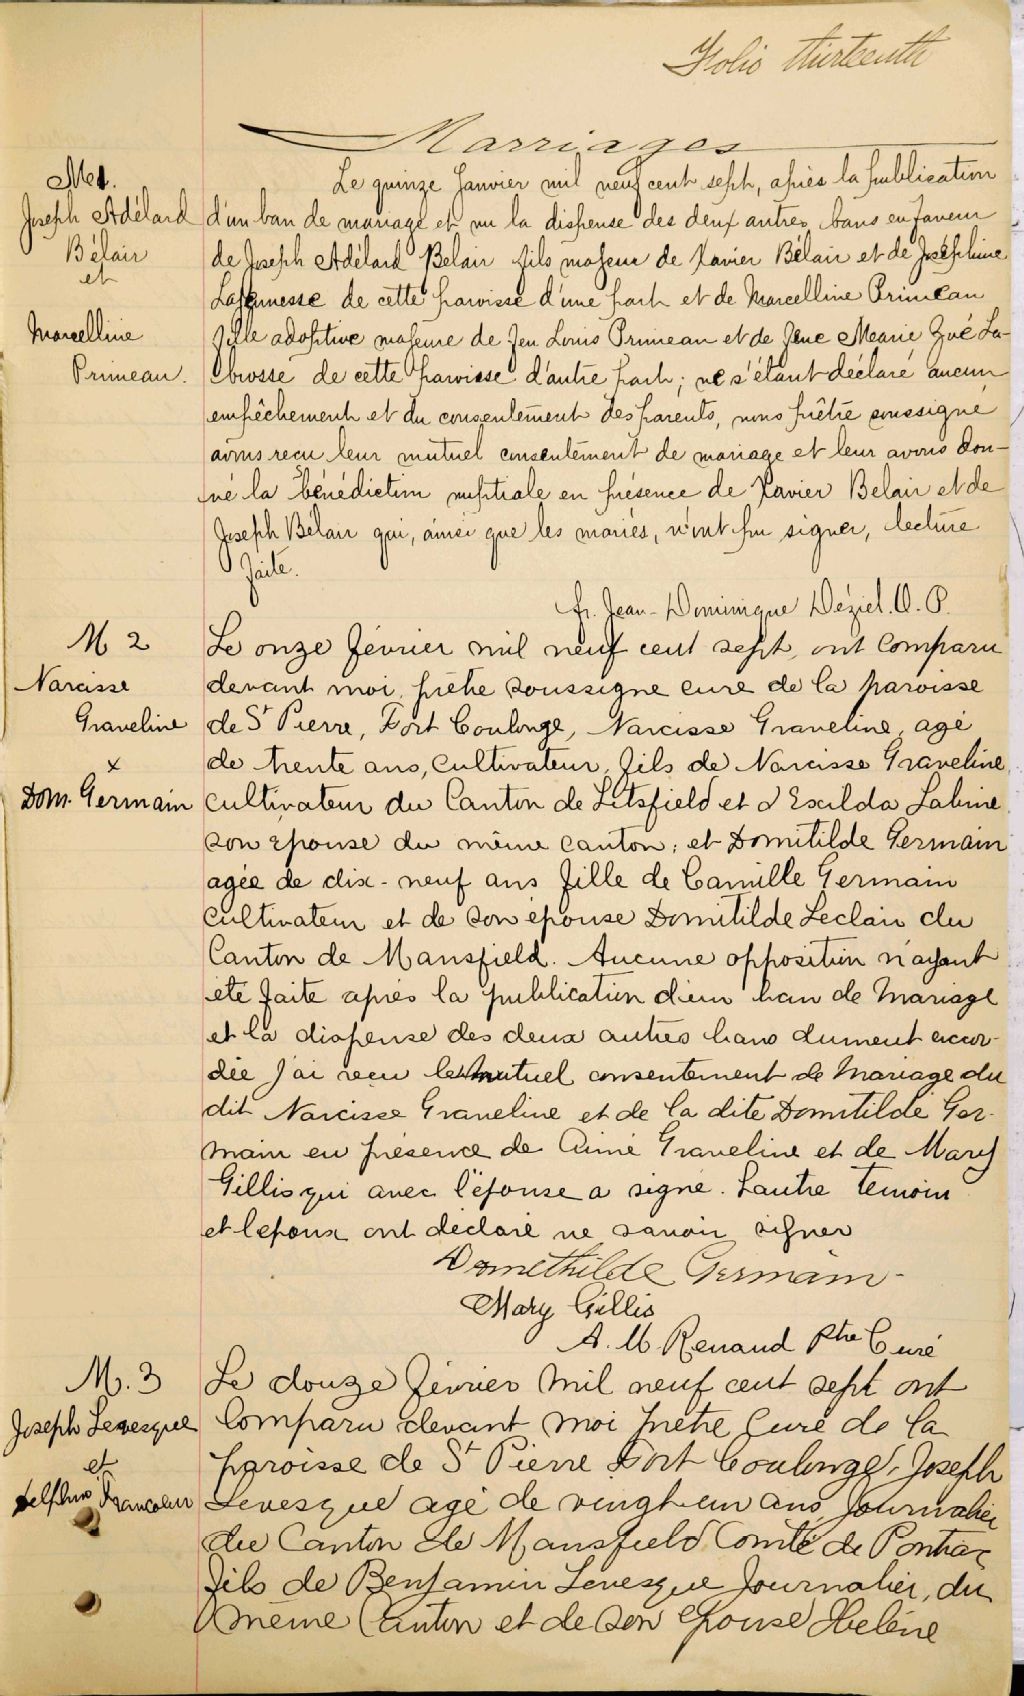 Folio thirteenth
Marriages
M 1.
Joseph Adélard
Bélair
et
Marcelline
Primeau.
Le quinze Janvier mil neuf cent sept, après la publication
d'un ban de mariage et vu la dispense des deux autres bans en faveur
de Joseph Adélard Belair fils majeur de Xavier Bélair et de Joséphine
Lajeunesse de cette paroisse d'une part et de Marcelline Primeau
fille adoptive majeure de feu Louis Primeau et de feue Marie Zoé La-
brosse de cette paroisse d'autre part; ne s'étant déclaré aucun
empêchement et du consentement des parents, nous prêtre soussigné
avons reçu leur mutuel consentement de mariage et leur avons don-
né la bénédiction nuptiale en présence de Xavier Belair et de
Joseph Bélair qui, ainsi que les mariés, n'ont pu signer, lecture
faite.
fr. Jean-Dominique Déziel. O. P.
M 2
Narcisse
Graveline
x
Dom. Germain
Le onze février mil neuf cent sept, ont comparu
devant moi, prêtre soussigne cure de la paroisse
de St Pierre, Fort Coulonge, Narcisse Graveline, agé
de trente ans, cultivateur, fils de Narcisse Graveline,
cultivateur du Canton de Litsfield et d'Exilda Labine
son epouse du même canton; et Domitilde Germain
agée de dix-neuf ans fille de Camille Germain
cultivateur et de son épouse Domitilde Leclair du
Canton de Mansfield. Aucune opposition n'ayant
été faite après la publication d'un ban de Mariage
et la dispense des deux autres bans dument accor-
dée j'ai reçu le mutuel consentement de Mariage du
dit Narcisse Graveline et de la dite Domitilde Ger-
main en présence de Aimé Graveline et de Mary
Gillis qui avec l'épouse a signé. L'autre temoin
et l'epoux ont déclaré ne savoir signer
Domethilde Germain
Mary Gillis
A. M. Renaud Ptre Curé
M. 3
Joseph Levesque
et
Delphine Francoeur
Le douze février Mil neuf cent sept ont
Comparu devant moi prêtre Curé de la
paroisse de St Pierre Fort Coulonge, Joseph
Levesque agé de vingt-un ans, Journalier
du Canton de Mansfield Comté de Pontiac
fils de Benjamin Levesque Journalier, du
même Canton et de son epouse Helène